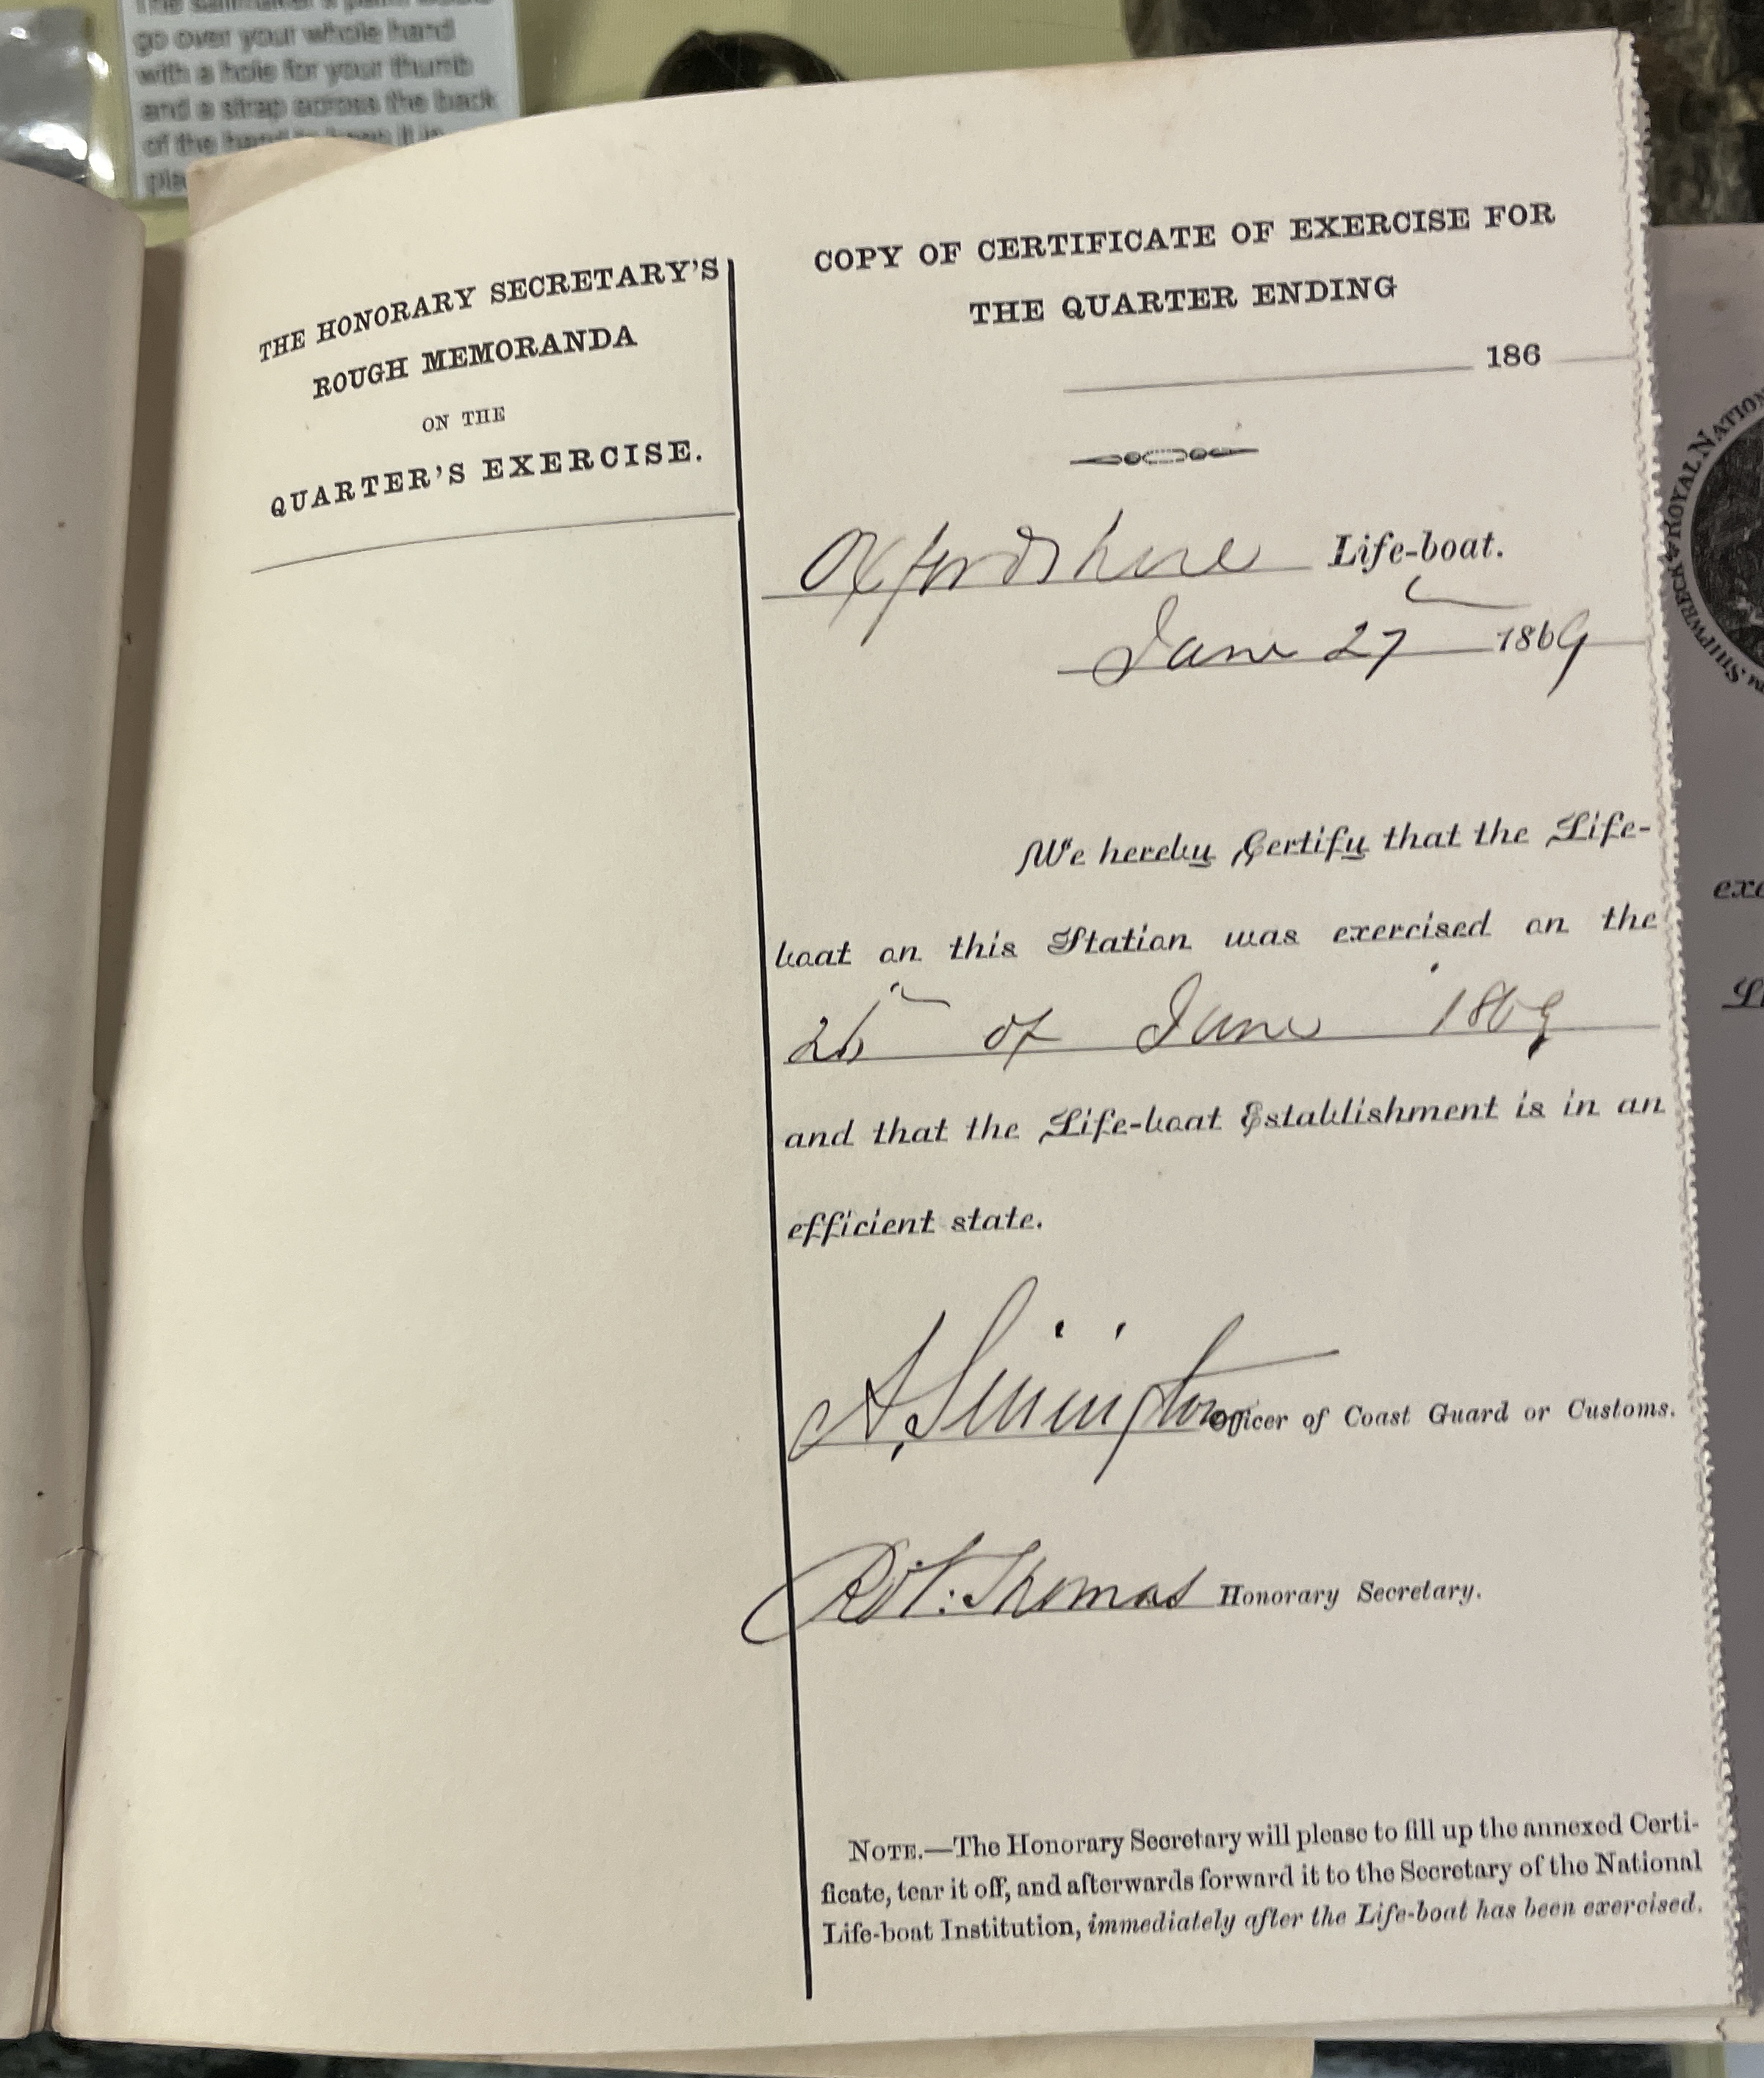 go over your whole hand
with a hole for your thumb
and a strap across the back
of the hand to keep it in
THE HONORARY SECRETARY'S
ROUGH MEMORANDA
ON THE
QUARTER'S EXERCISE.
COPY OF CERTIFICATE OF EXERCISE FOR
THE QUARTER ENDING
186
Oxfordshire Life-boat.
June 27 1869
We hereby Certify that the Life-
boat on this Station was exercised on the
26th of June 1869
and that the Life-boat Establishment is in an
efficient state.
A. Officer of Coast Guard or Customs.
Robt: Thomas Honorary Secretary.
NOTE.—The Honorary Secretary will please to fill up the annexed Certi-
ficate, tear it off, and afterwards forward it to the Secretary of the National
Life-boat Institution, immediately after the Life-boat has been exercised.
ROYAL NATION
SHIPWRECK